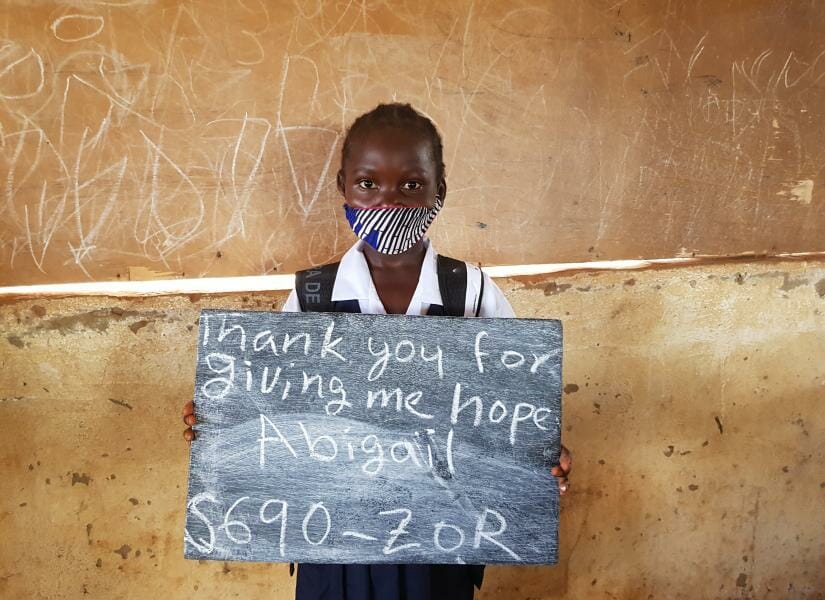 ADE
Thank you for
giving me hope
Abigail
S690-ZOR